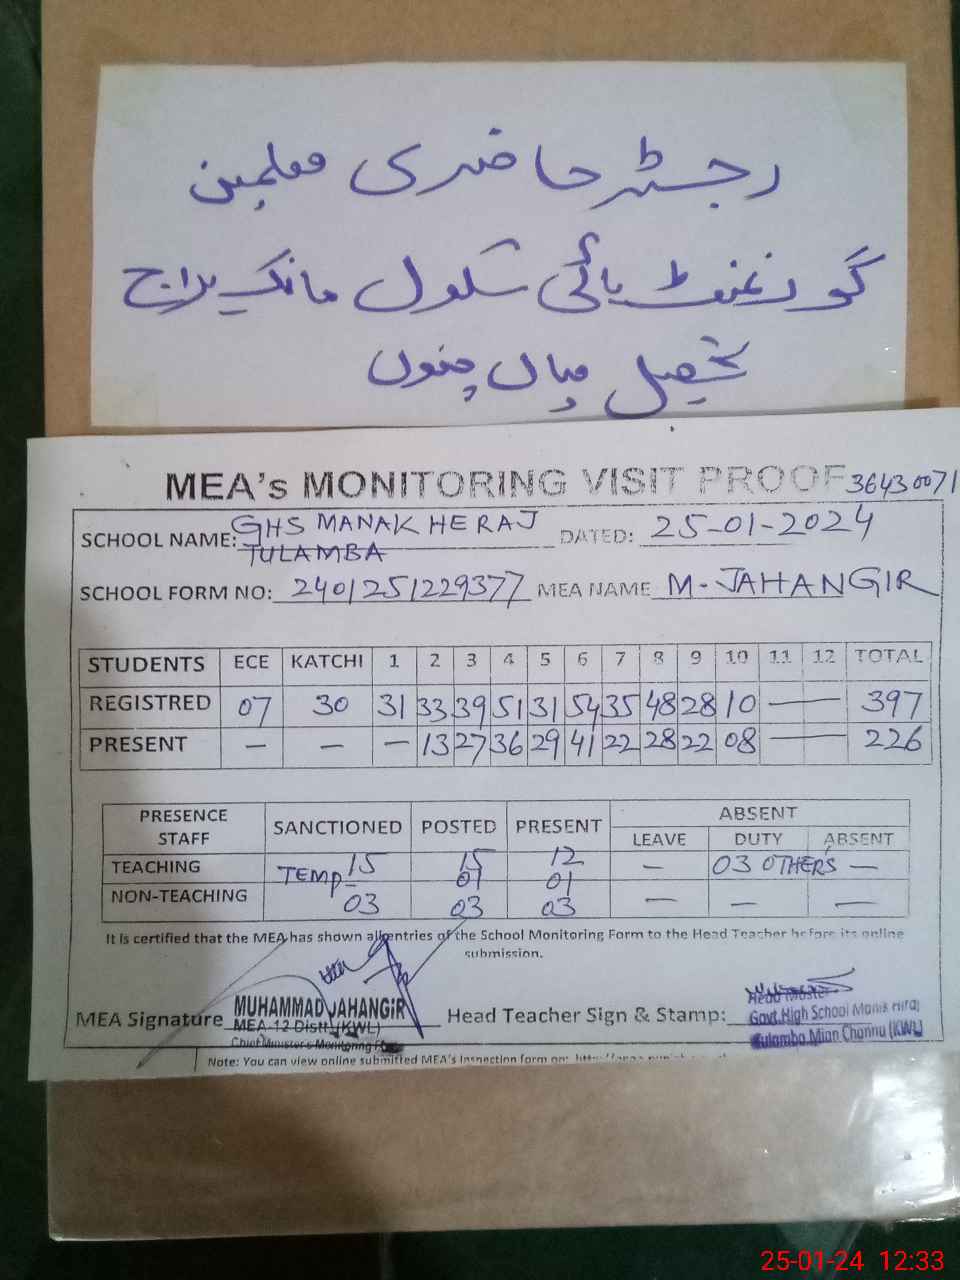 رجسٹر حاضری معلمین
گورنمنٹ ہائی سکول مانک ہراج
تحصیل میاں چنوں
MEA's MONITORING VISIT PROOF 36430071
SCHOOL NAME: GHS MANAK HERAJ TULAMBA DATED: 25-01-2024
SCHOOL FORM NO: 2401251229377 MEA NAME M. JAHANGIR
STUDENTS ECE KATCHI 1 2 3 4 5 6 7 8 9 10 11 12 TOTAL
REGISTRED 07 30 31 33 39 51 31 54 35 48 28 10 — 397
PRESENT — — — 13 27 36 29 41 22 28 22 08 — 226
PRESENCE STAFF SANCTIONED POSTED PRESENT ABSENT
LEAVE DUTY ABSENT
TEACHING 15 15 12 — 03 OTHERS —
TEMP — 01 01
NON-TEACHING 03 03 03 — — —
It is certified that the MEA has shown all entries of the School Monitoring Form to the Head Teacher before its online
submission.
MEA Signature MUHAMMAD JAHANGIR
MEA-12 Distt (KWL)
Chief Minister's Monitoring
Head Teacher Sign & Stamp:
Head Master
Govt. High School
Tulamba Mian Channu (KWL)
Note: You can view online submitted MEA's Inspection form on:
25-01-24 12:33